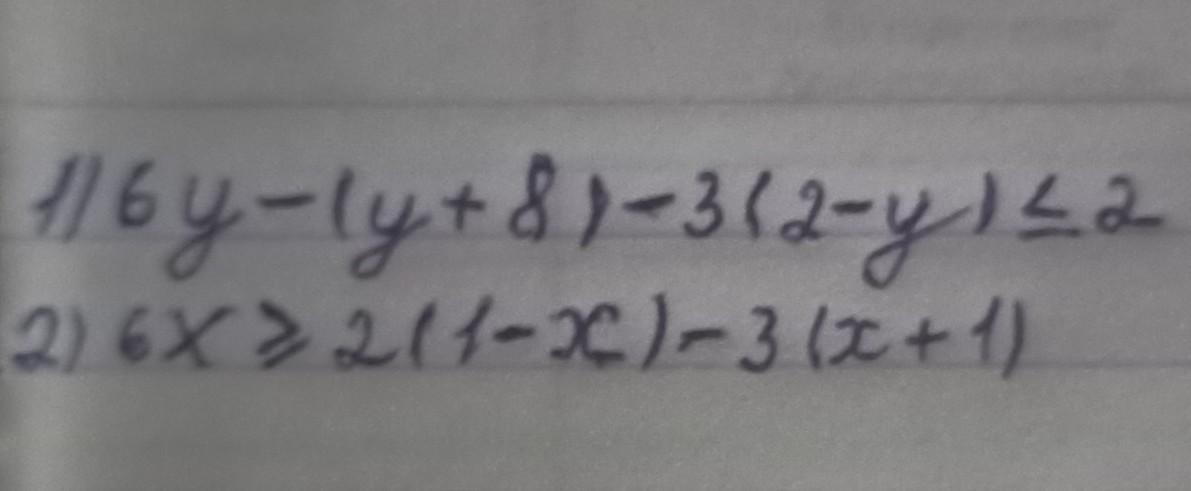 1) 6y-(y+8)-3(2-y)≤2
2) 6x⩾2(1-x)-3(x+1)